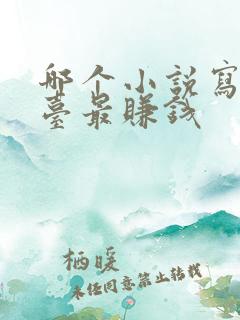 哪个小说寫
臺最賺钱
栖暖
未经同意禁止转载